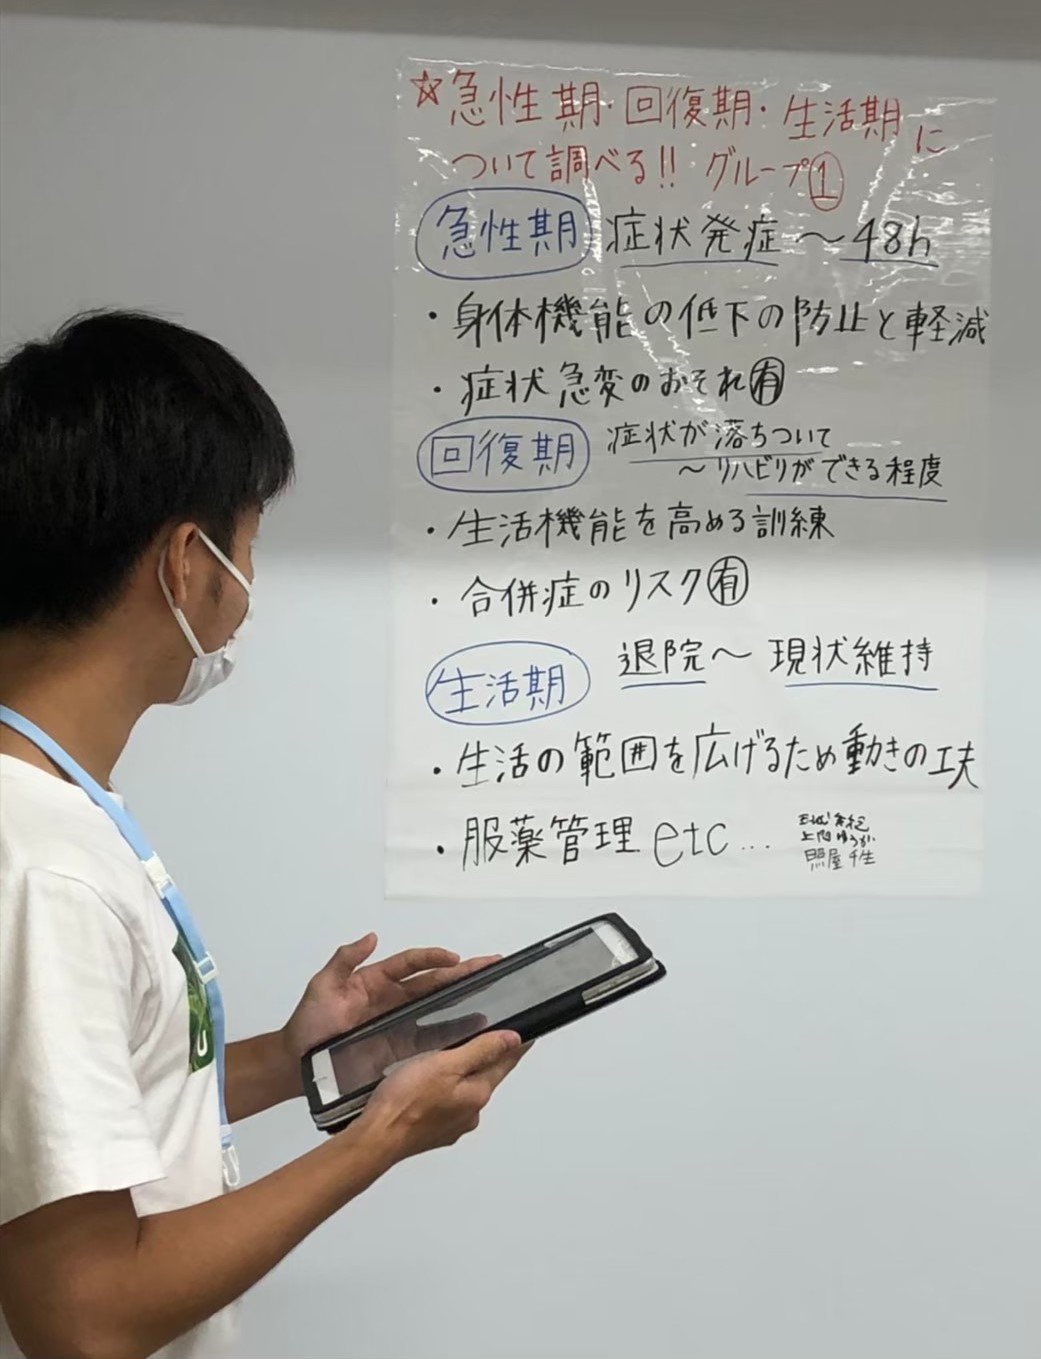 ☆急性期・回復期・生活期に
ついて調べる!! グループ①
急性期 症状発症〜48h
・身体機能の低下の防止と軽減
・症状急変のおそれ㊒
回復期 症状が落ちついて
〜リハビリができる程度
・生活機能を高める訓練
・合併症のリスク㊒
生活期 退院〜現状維持
・生活の範囲を広げるため動きの工夫
・服薬管理 etc...
照屋 千生